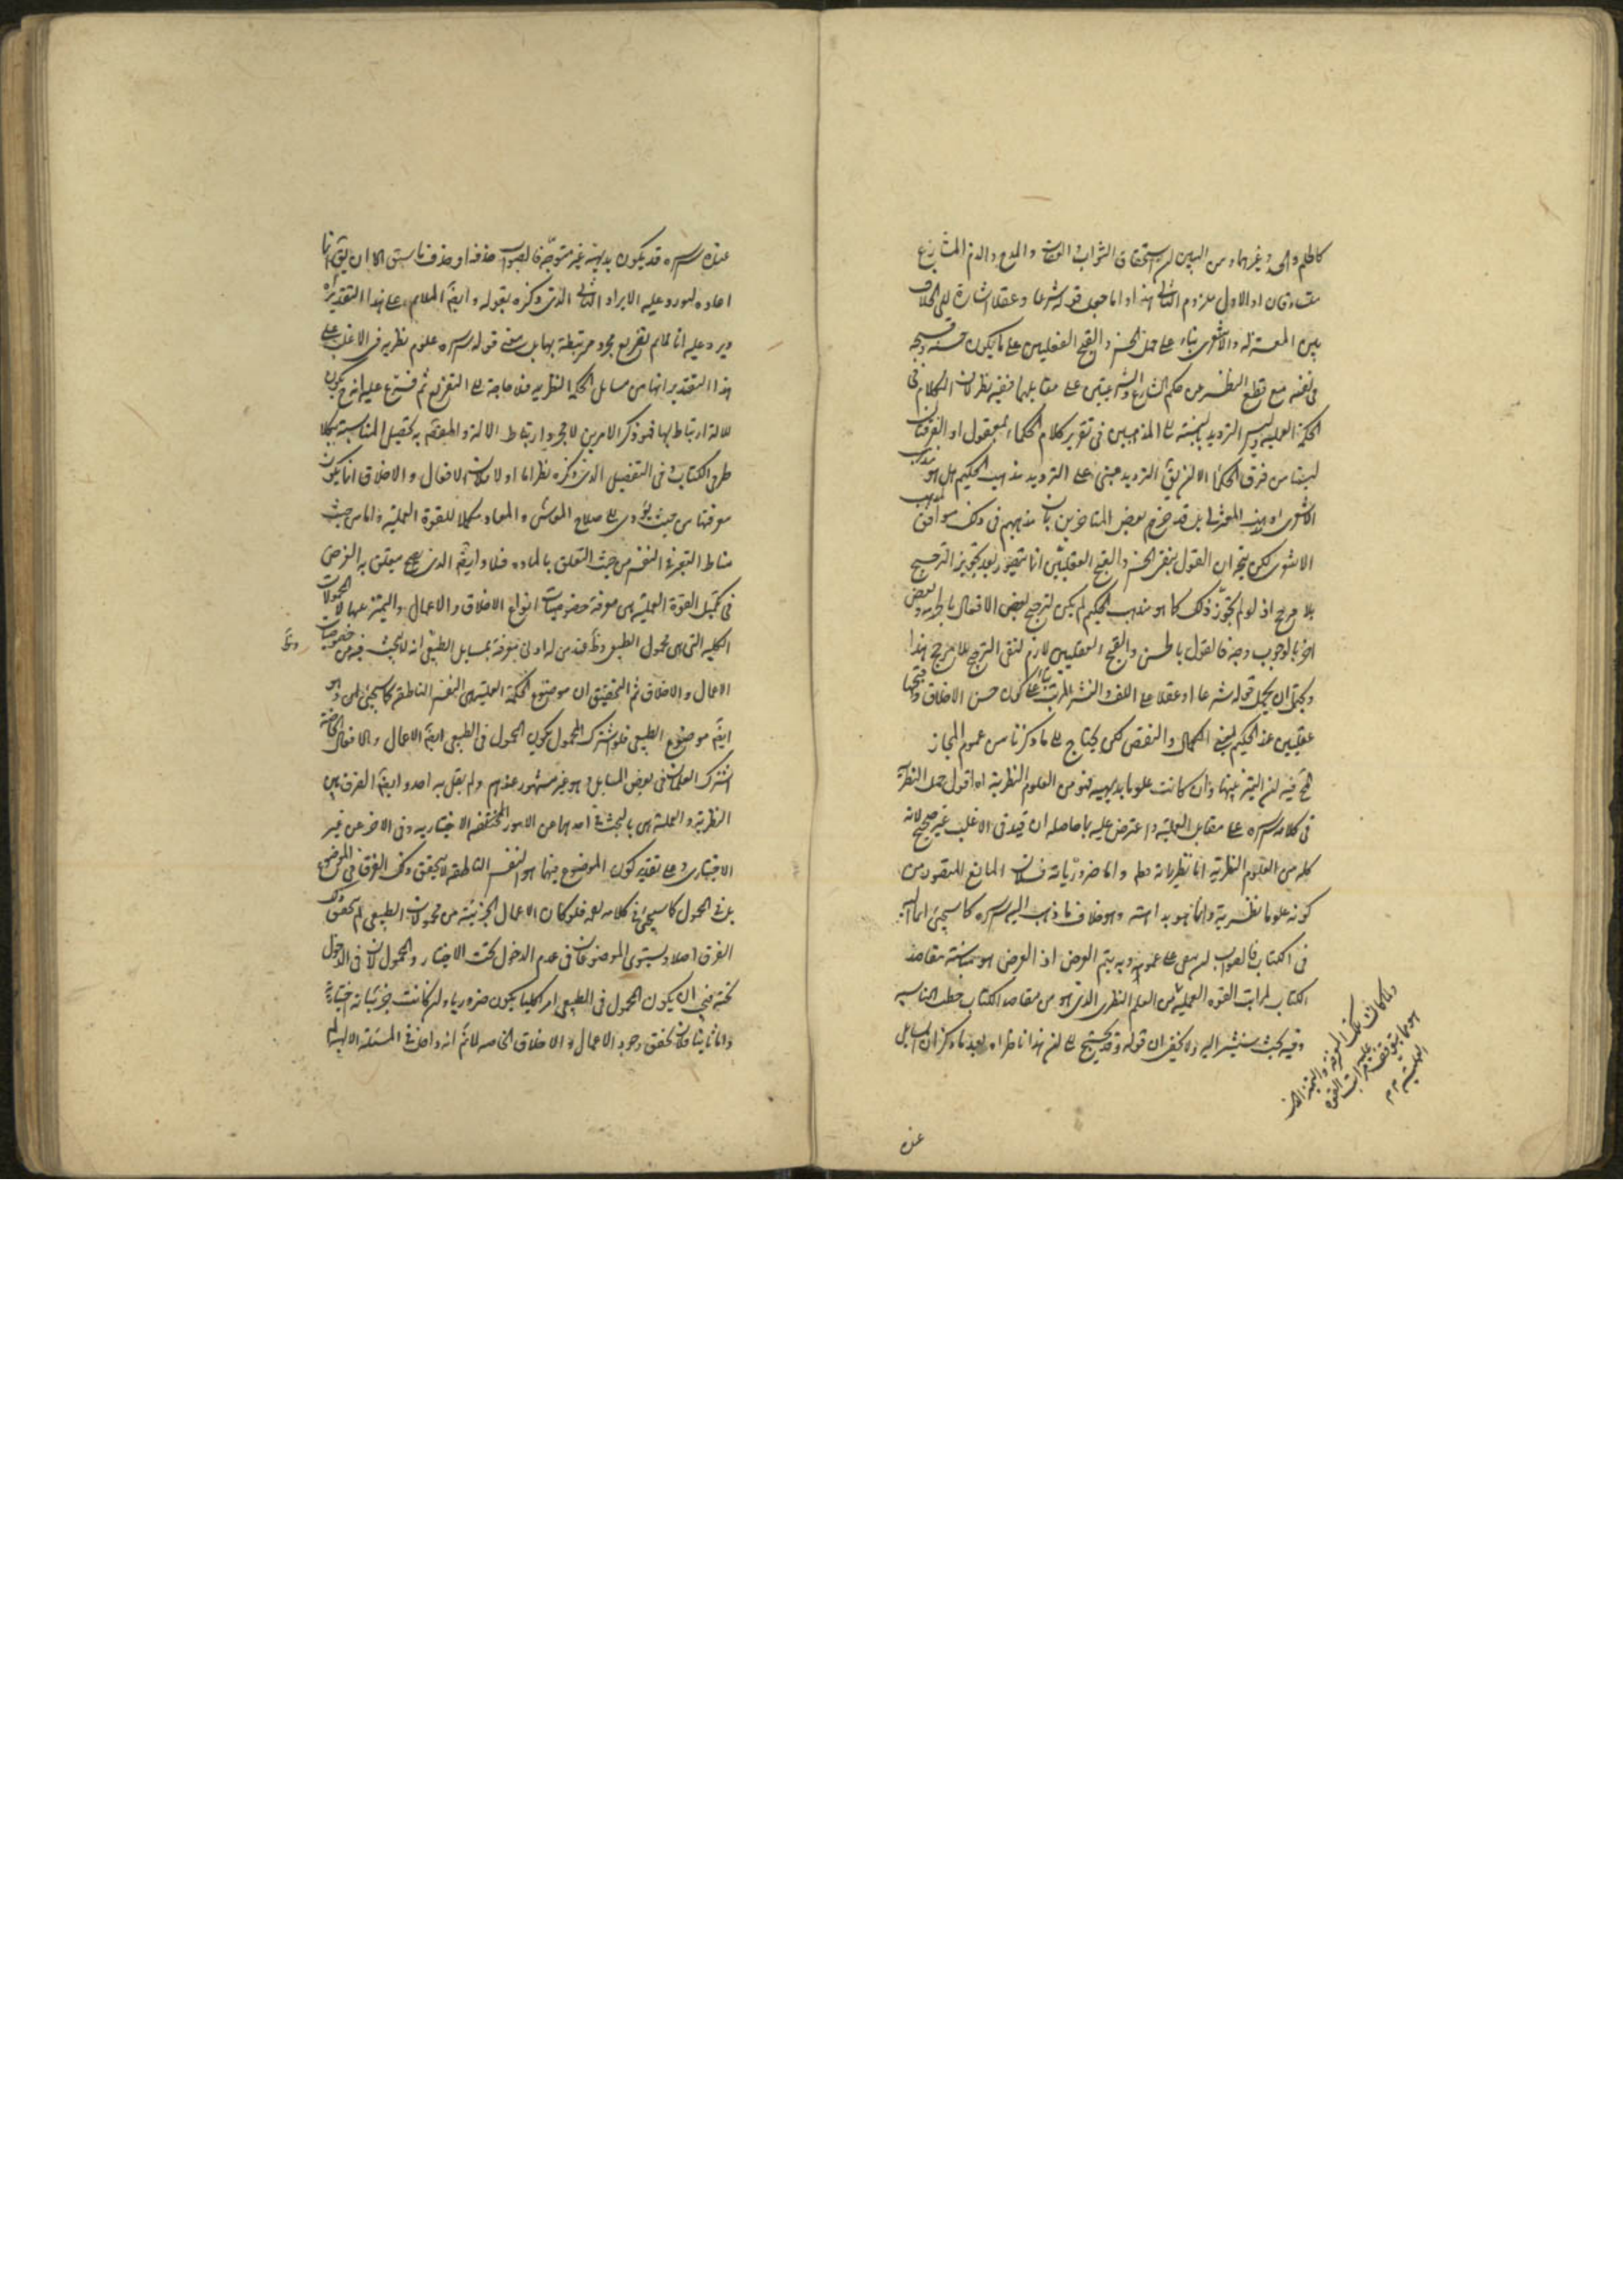 كالظلم والحسد وغيرهما ومن البين ان استحقاق الثواب والعقاب والمدح والذم المشارع
متساوقان او الاول ملزوم الثاني هذا واما جعل قوله شرعا وعقلا اشارة الى الخلاف
بين المعتزلة والاشعري بناء على حمل الحسن والقبح العقليين على ما يكون حسنه وقبحه
في نفسه مع قطع النظر عن حكم الشارع والشرعيين على مقابلهما ففيه نظر لان الكلام في
الحكمة العملية وليس الترديد بالنسبة الى المذهبين في تقرير كلام الحكماء بمعقول اذ الفرقتان
ليستا من فرق الحكماء الا ان يقال الترديد مبني على الترديد مذهب الحكيم هل هو مذهب
الاشعري او مذهب المعتزلي بل قد جزم بعض المتاخرين بان مذهبهم في ذلك موافق لمذهب
الاشعري لكن يتجه ان القول بنفي الحسن والقبح العقليين انما يتصور بعد تجويز الترجيح
بلا مرجح اذ لو لم يجوز ذلك كما هو مذهب الحكيم لم يكن لترجيح بعض الافعال بالحرمة وبعض
اخر بالوجوب وجه فالقول بالحسن والقبح العقليين لازم لنفي الترجيح بلا مرجح هذا
ويحتمل ان يحمل قوله شرعا او عقلا على اللف والنشر المرتب بناء على كون حسن الاخلاق وقبحها
عقليين عند الحكيم بمعنى الكمال والنقص لكن يحتاج الى ما ذكرنا من عموم المجاز
قوله فيه ان التميز بينها وان كانت علوما بديهية فهو من العلوم النظرية اه اقول حمل النظرية
في كلامه سره على مقابل العملية واعترض عليه بما حاصله ان قيد في الاغلب غير صحيح لانه
كله من العلوم النظرية اما نظرياته فظ واما ضرورياته فلان المانع المقصود من
كونه علوما نظرية وانما هو بداهته وهو خلاف ما ذهب اليه سره كما سيجئ ايماء اليه
في الكتاب فالصواب ان يبقى على عمومه وبه يتم الغرض اذ الغرض هو مناسبة مقاصد
الكتاب لمراتب القوة العملية من العلم النظري الذي هو من مقاصد الكتاب خطب المناسبة
وفيه بحث سنشير اليه ولا يخفى ان قوله وقد يحتج الى ان هذا ناظر اه بعد ما ذكر ان المسائل
ولما كان تلك المعرفة والتميز
هو ما يتوقف عليه مراتب القوة
العملية م م
عنده
عنده سره قد يكون بديهية غير متوجه فالصواب حذفه او حذف ما سبق الا ان يقال انما
اعاده ليورد عليه الايراد الثاني الذي ذكره بقوله وايضا الملائم على هذا التقدير اه
ويرد عليه انا لا نم تفريع مجرد مرتبطة بها بل معنى قوله سره علوم نظرية في الاغلب على
هذا التقدير انها من مسائل الحكمة النظرية فلا حاجة الى التفريع ثم فسرع عليه انه يكون
للآلة ارتباط بها فهو ذكر الامرين لا مجرد ارتباط الآلة والمقصود به تحصيل المناسبة بكلا
طرفي الكتاب وفي التفصيل الذي ذكره نظر اما اولا فلان الافعال والاخلاق انما يكون
معرفتها من حيث يؤدي الى صلاح المعاش والمعاد مكملا للقوة العملية واما من حيث
مناط التجرد في النفس من حيث التعلق بالمادة فلا وايضا الذي يصح يتعلق به الغرض
في تكميل القوة العملية هي معرفة خصوصيات انواع الاخلاق والاعمال والتميز بينها لا المحمولات
الكلية التي هي محمول الطبيعي وقد ظ فمن له ادنى معرفة بمسائل الطبيعي انه لا يبحث فيه عن خصوصيات
الاعمال والاخلاق ثم التحقيق ان موضوع الحكمة العملية هي النفس الناطقة كما سيجئ وهو
ايضا موضوع الطبيعي فلو اشترك المحمول بكون المحمول في الطبيعي ايضا الاعمال والافعال الخاصة
اشترك العلمان في بعض المسائل وهو غير مشهور عندهم ولم يقل به احد وايضا الفرق بين
النظرية والعملية هي بالبحث في احديهما عن الامور المختصة الاختيارية وفي الاخر عن غير
الاختياري وعلى تقدير كون الموضوع فيهما هو النفس الناطقة لا يتحقق ذلك الفرق في الموضوع
بل في المحمول كما سيجئ في كلامه بعد فلو كان الاعمال الجزئية من محمولات الطبيعي لم يتحقق ذلك
الفرق اصلا ويستوي الموضوعان في عدم الدخول تحت الاختيار والمحمولان في الدخول
تحته فينبغي ان يكون المحمول في الطبيعي امرا كليا يكون ضروريا وان كانت جزئياته اختيارية
واما ثانيا فلان تحقق وجود الاعمال والاخلاق الخاصة لا نم انه داخل في المسئلة الالهية